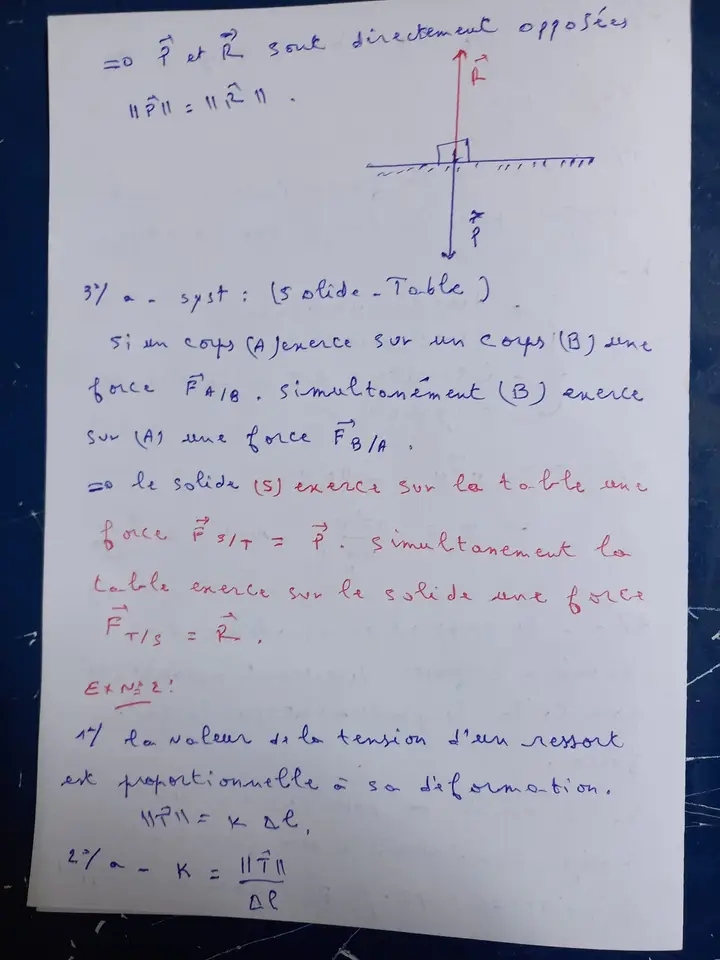 => P⃗ et R⃗ sont directement opposées
||P⃗|| = ||R⃗|| .
R⃗
P⃗
3°/ a - syst : (Solide - Table)
Si un corps (A) exerce sur un corps (B) une
force F⃗ A/B . simultanément (B) exerce
sur (A) une force F⃗ B/A .
=> le solide (S) exerce sur la table une
force F⃗ S/T = P⃗ . simultanement la
table exerce sur le solide une force
F⃗ T/S = R⃗ .
Ex N° 2 :
1°/ la valeur de la tension d'un ressort
est proportionnelle à sa déformation.
||T⃗|| = K Δl ,
2°/ a - K = ||T⃗||
Δl